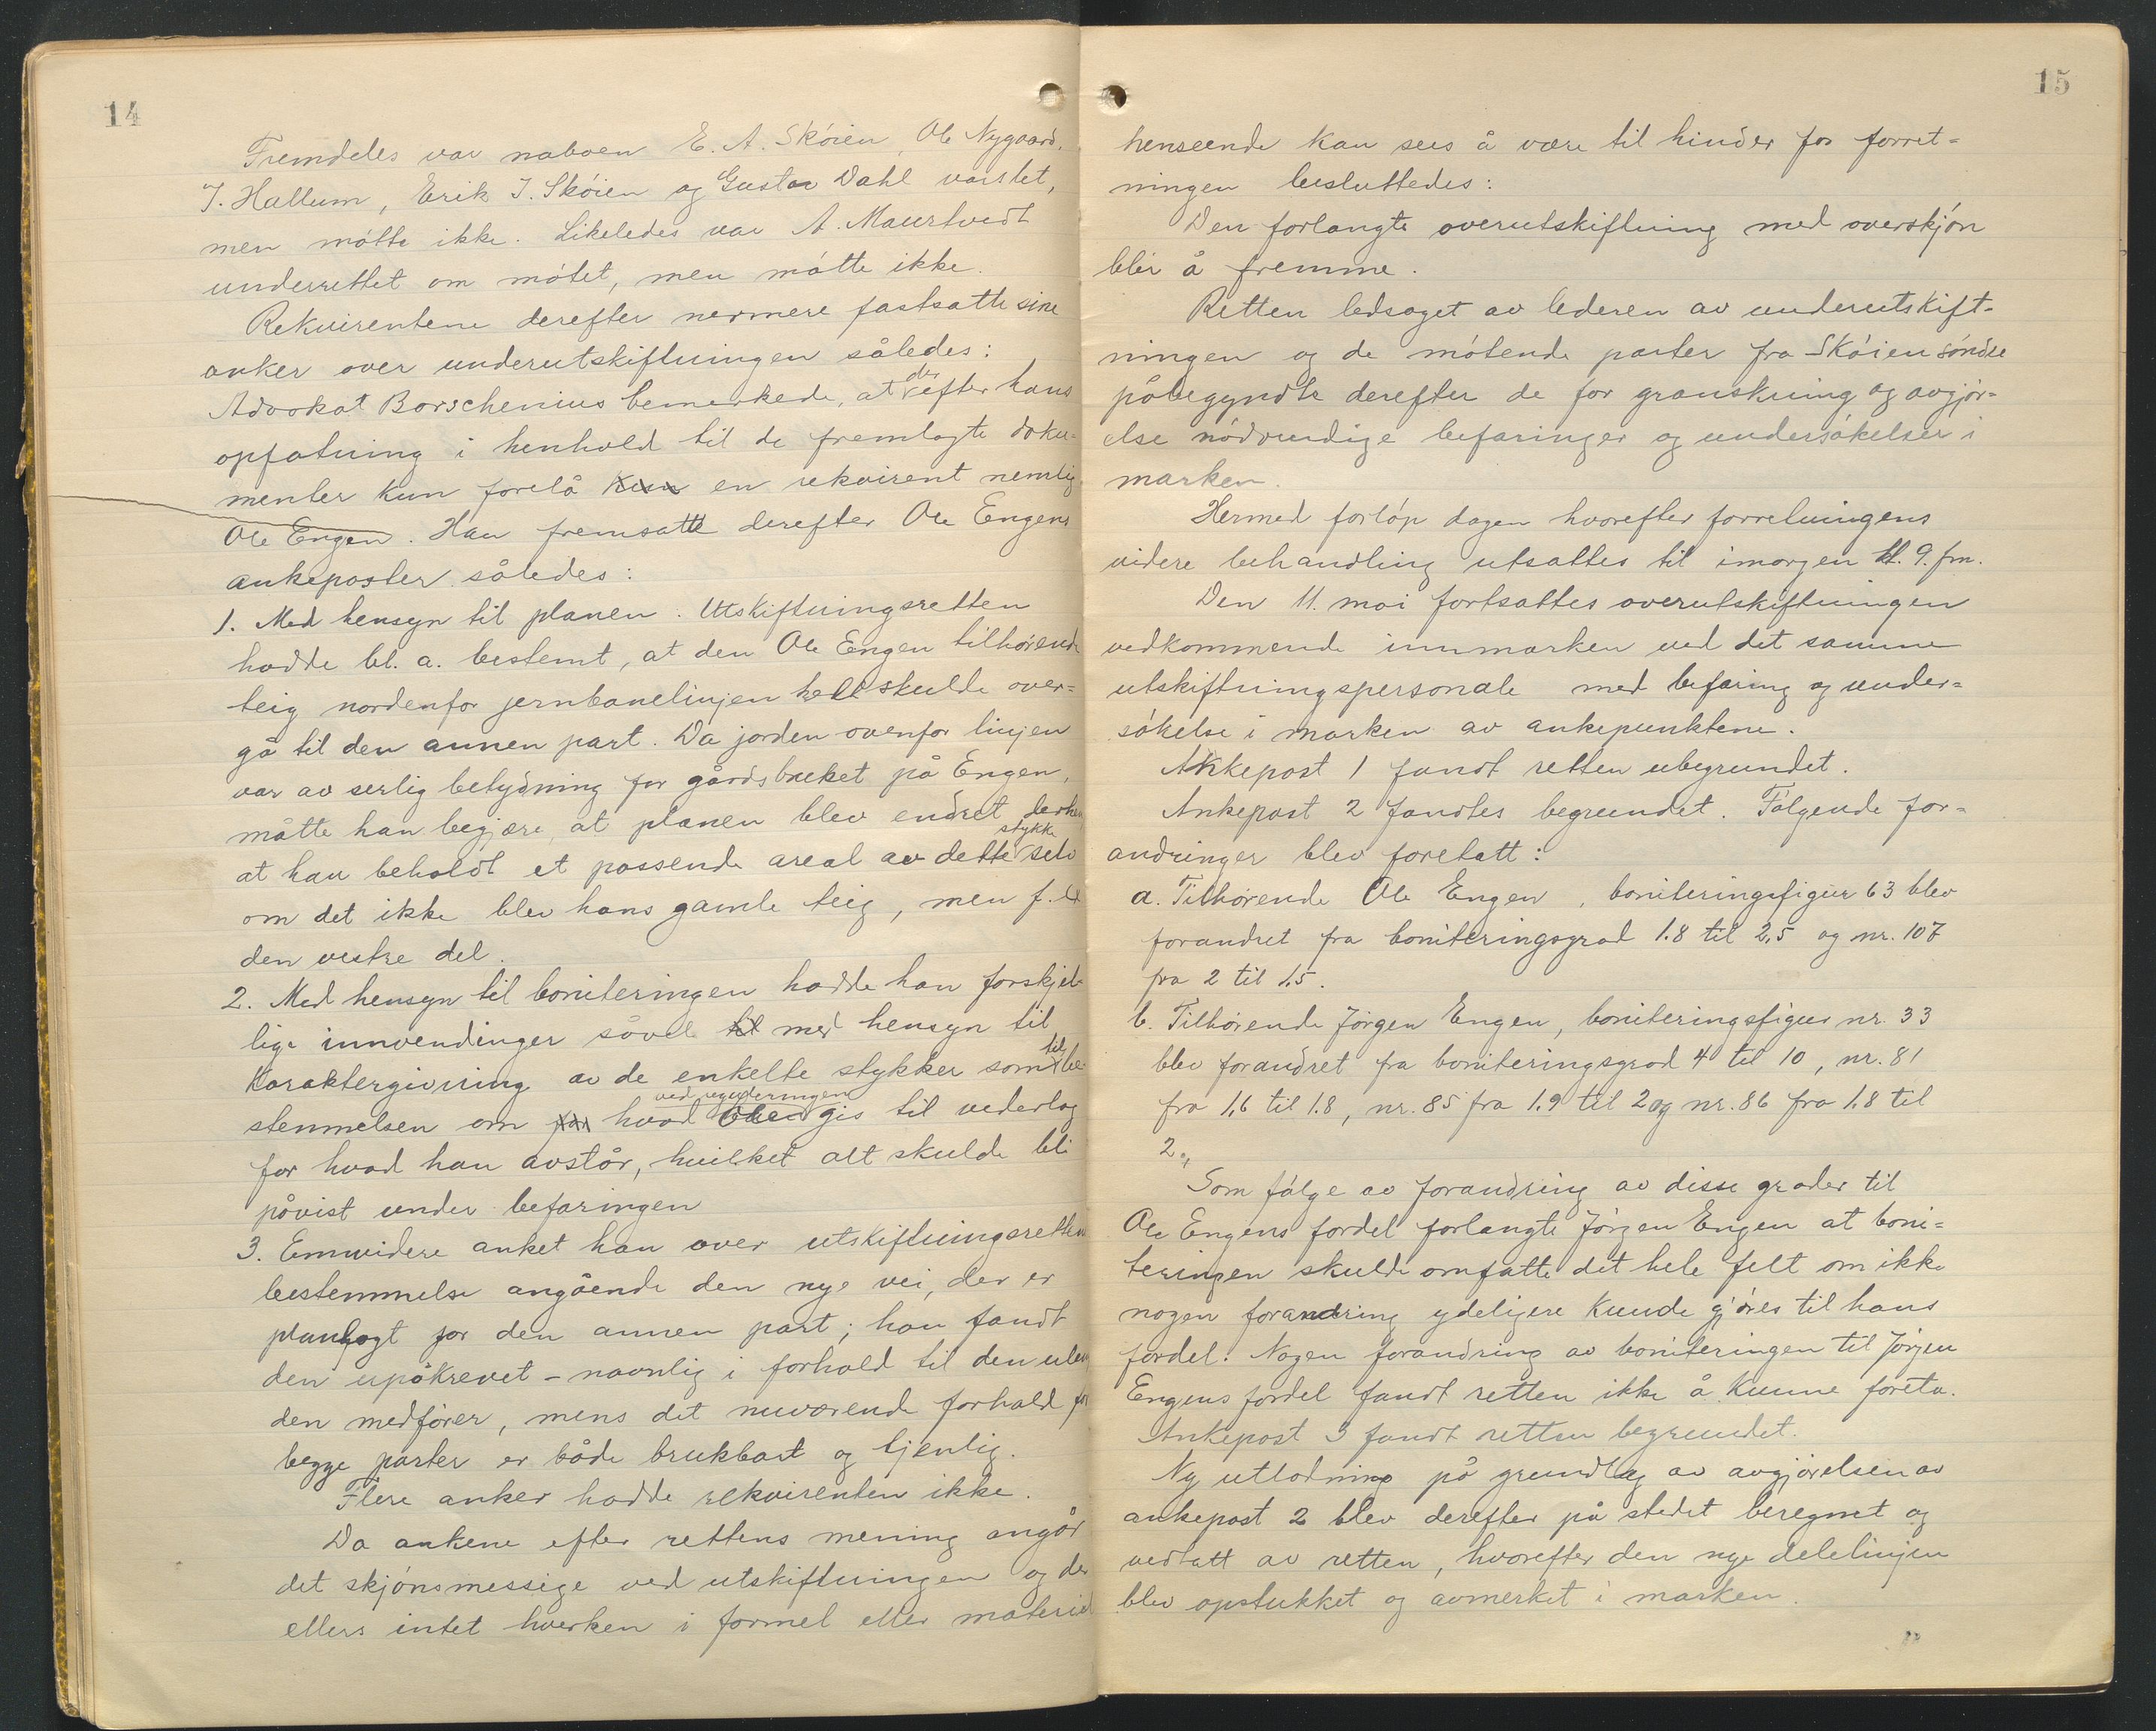 14
Fremdeles var naboen E. A. Skóien, Ole Nygaard,
J. Hallum, Erik J. Skóien og Gustav Dahl varslet,
men mótte ikke. Likeledes var A. Maurtvedt
underrettet om mótet, men mótte ikke.
Rekvirentene derefter nermere fastsatte sine
anker over underutskiftningen således:
Advokat Borschenius bemerkede, at der efter hans
opfatning i henhold til de fremlagte doku-
menter kun forelå kun en rekvirent nemlig
Ole Engen. Han fremsatte derefter Ole Engens
ankeposter således:
1. Med hensyn til planen. Utskiftningsretten
hadde bl. a. bestemt, at den Ole Engen tilhórende
teig nordenfor jernbanelinjen helt skulde over-
gå til den annen part. Da jorden ovenfor linjen
var av serlig betydning for gårdsbruket på Engen,
måtte han begjære, at planen blev endret derhen
at han beholdt et passende areal av dette stykke selv
om det ikke blev hans gamle teig, men f. eks
den vestre del.
2. Med hensyn til boniteringen hadde han forskjel-
lige innvendinger såvel til med hensyn til
karaktergivning av de enkelte stykker som til be-
stemmelsen om for hvad ved vurderingen gis til vederlag
for hvad han avstår, hvilket alt skulde bli
påvist under befaringen
3. Emvidere anket han over utskiftningsrettens
bestemmelse angående den nye vei, der er
planlagt for den annen part; han fandt
den upåkrevet - navnlig i forhold til den ulempe
den medfórer, mens det nuværende forhold for
begge parter er både brukbart og tjenlig.
Flere anker hadde rekvirenten ikke.
Da ankene efter rettens mening angår
det skjónsmessige ved utskiftningen og der
ellers intet hverken i formel eller materiel
15
henseende kan sees å være til hinder for forret-
ningen besluttedes:
Den forlangte overutskiftning med overskjón
blir å fremme.
Retten ledsaget av lederen av underutskift-
ningen og de mótende parter fra Skóien sóndre
påbegyndte derefter de for granskning og avgjór-
else nódvendige befaringer og undersókelser i
marken.
Hermed forlóp dagen hvorefter forretningens
videre behandling utsattes til imorgen kl. 9. fm.
Den 11. mai fortsattes overutskiftningen
vedkommende innmarken ved det samme
utskiftningspersonale med befaring og under-
sókelse i marken av ankepunktene.
Ankepost 1 fandt retten ubegrundet.
Ankepost 2 fandtes begrundet. Fólgende for-
andringer blev foretatt:
a. Tilhórende Ole Engen, boniteringsfigur 63 blev
forandret fra boniteringsgrad 1.8 til 2,5 og nr. 107
fra 2 til 1.5.
b. Tilhórende Jórgen Engen, boniteringsfigur nr. 33
blev forandret fra boniteringsgrad 4 til 10, nr. 81
fra 1,6 til 1.8, nr. 85 fra 1.9 til 2 og nr. 86 fra 1,8 til
2.
Som fólge av forandring av disse grader til
Ole Engens fordel forlangte Jórgen Engen at boni-
teringen skulde omfatte det hele felt om ikke
nogen forandring ydeligere kunde gjóres til hans
fordel. Nogen forandring av boniteringen til Jórgen
Engens fordel fandt retten ikke å kunne foreta.
Ankepost 3 fandt retten begrundet.
Ny utlodning på grundlag av avgjórelsen av
ankepost 2 blev derefter på stedet beregnet og
vedtatt av retten, hvorefter den nye delelinjen
blev opstukket og avmerket i marken.